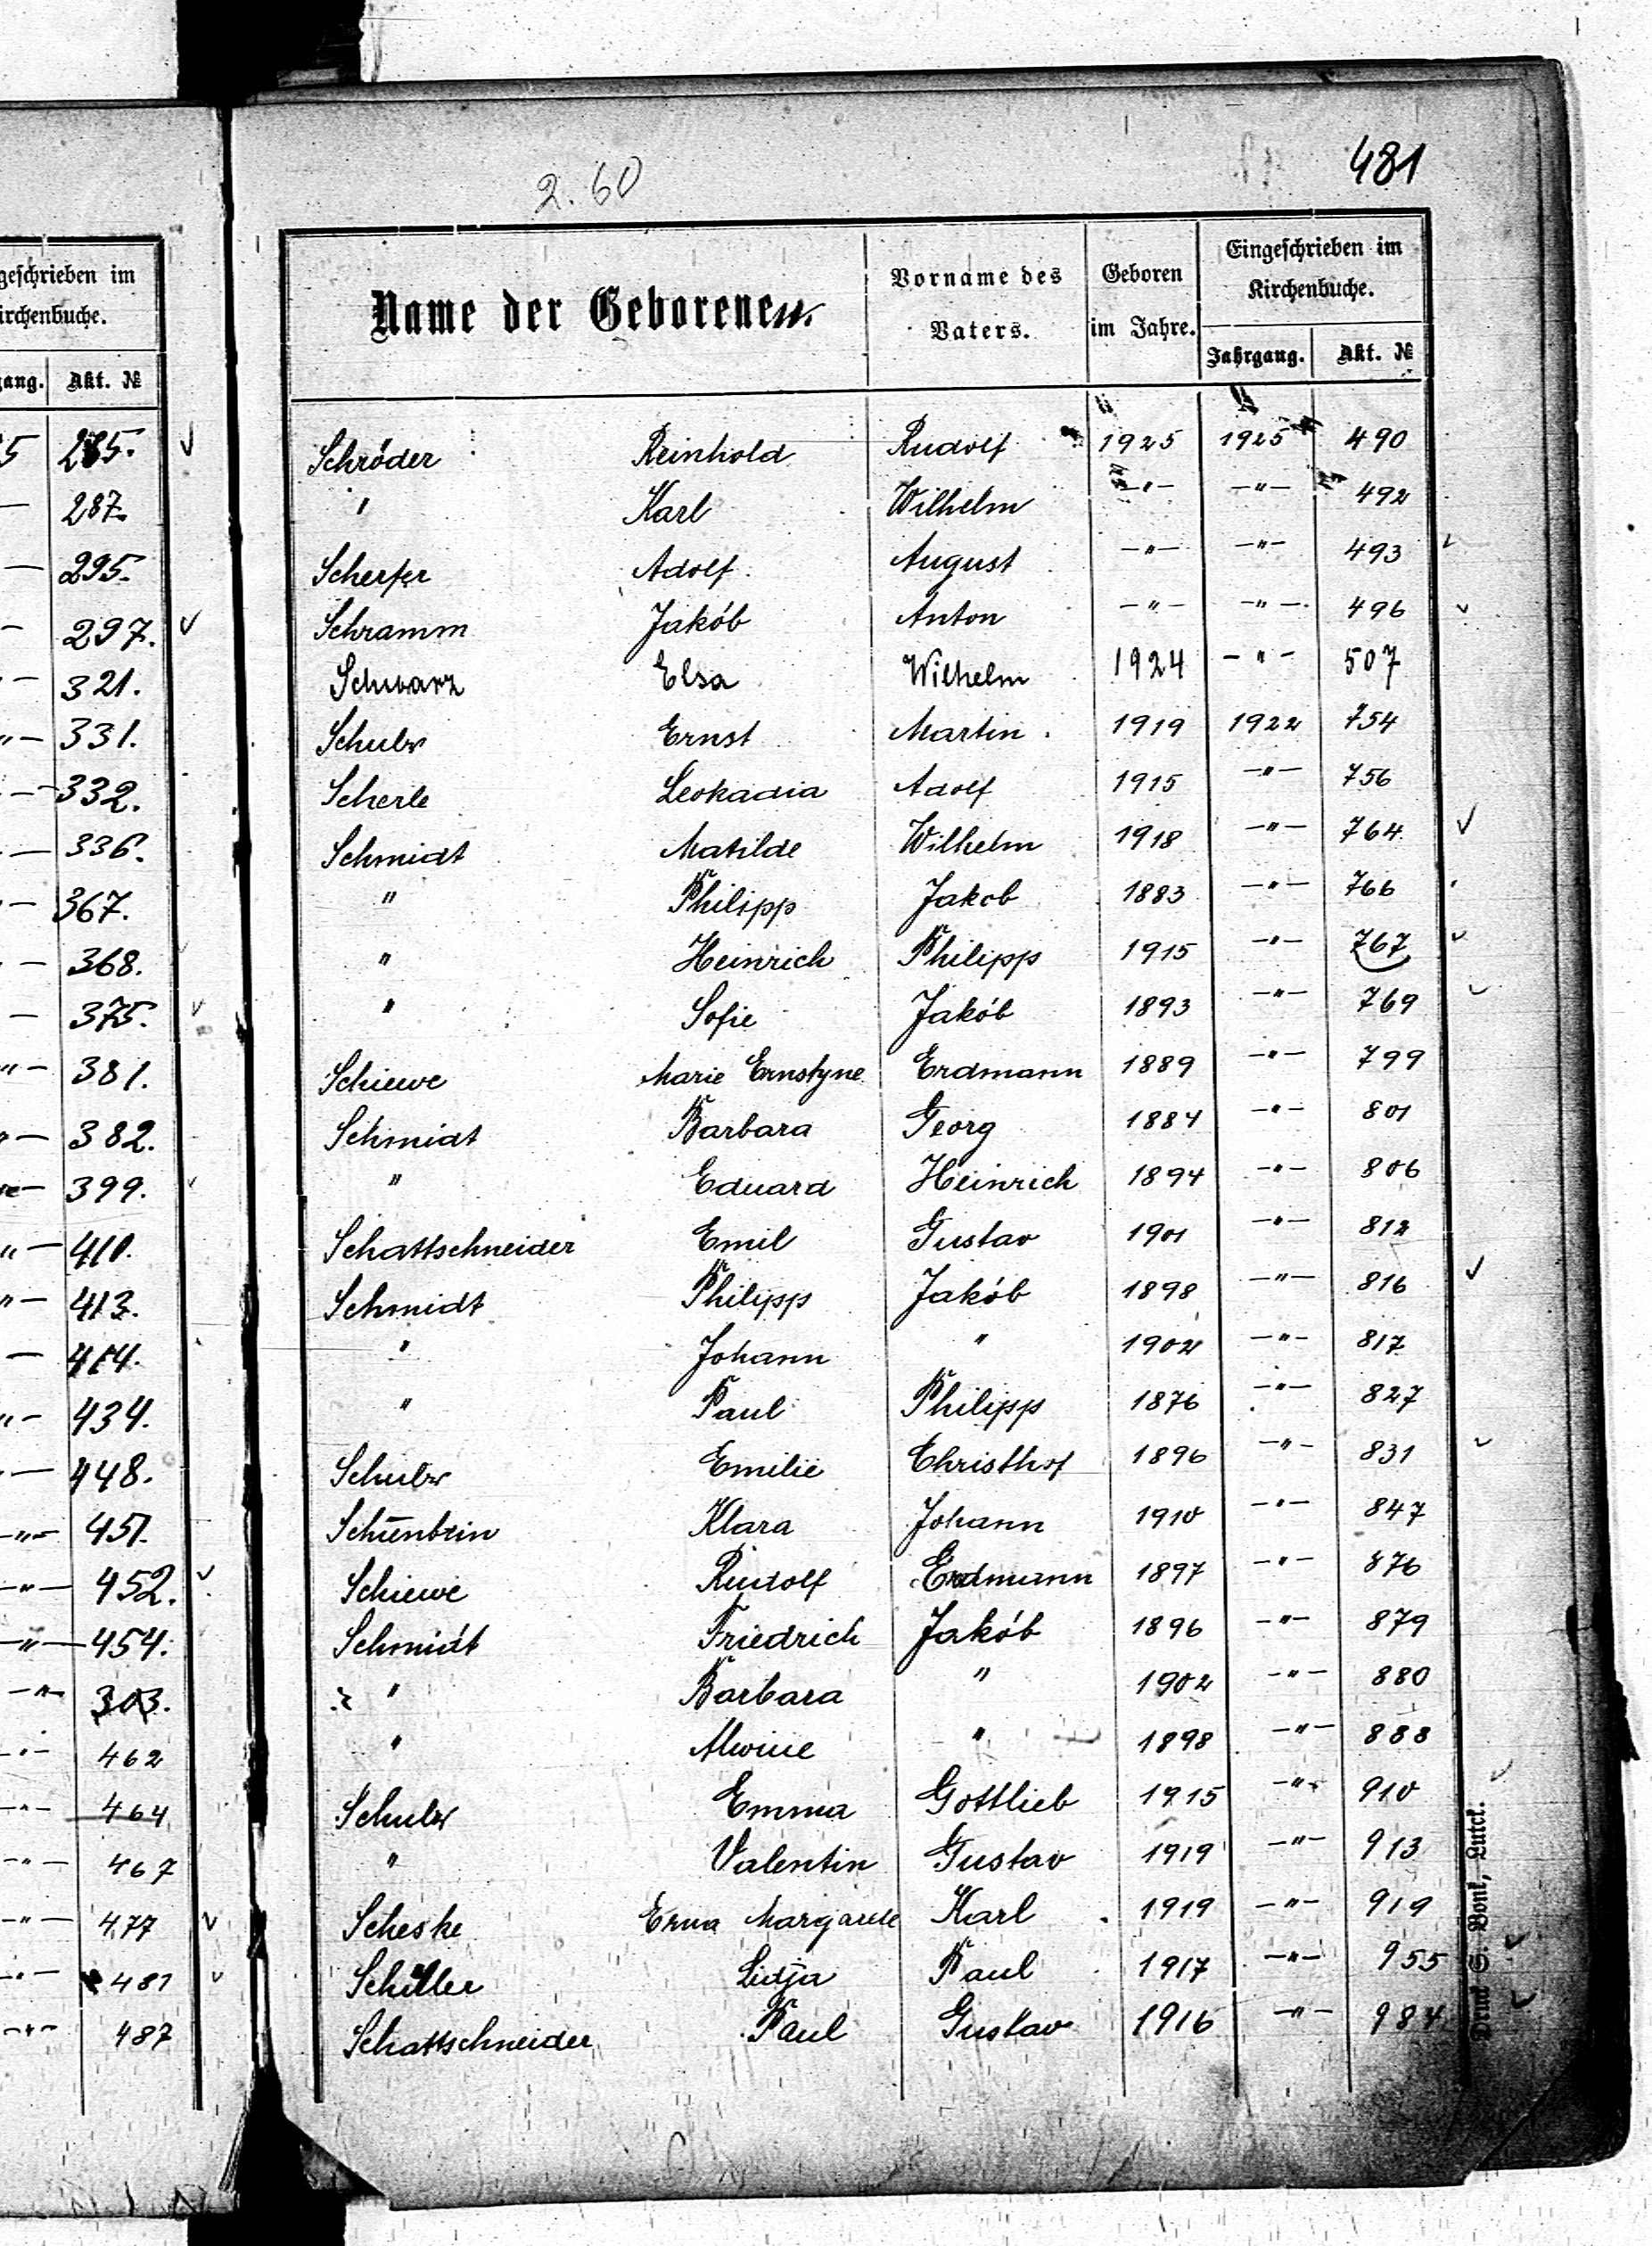 geschrieben im
irchenbuche.
gang. Akt. №
5 285.
— 287.
— 295.
— 297.
— 321.
"— 331.
— 332.
— 336.
— 367.
— 368.
— 375.
"— 381.
"— 382.
— 399.
"— 410.
"— 413.
— 414.
"— 434.
— 448.
—"— 451.
—"— 452.
—"— 454.
—"— 303.
—"— 462
—"— 464
—"— 467
—"— 477
—"— 481
—"— 487
2.60
481
Name der Geborenen.
Vorname des Vaters.
Geboren im Jahre.
Eingeschrieben im Kirchenbuche.
Jahrgang. Akt. №
Schröder Reinhold Rudolf 1925 1925 490
" Karl Wilhelm —"— —"— 492
Scherfer Adolf August —"— —"— 493
Schramm Jakób Anton —"— —"— 496
Schwarz Elsa Wilhelm 1924 —"— 507
Schulz Ernst Martin 1919 1922 754
Scherle Leokadia Adolf 1915 —"— 756
Schmidt Matilde Wilhelm 1918 —"— 764
" Philipp Jakob 1883 —"— 766
" Heinrich Philipp 1915 —"— 767
" Sofie Jakób 1893 —"— 769
Schiewe Marie Ernstyne Erdmann 1889 —"— 799
Schmidt Barbara Georg 1884 —"— 801
" Eduard Heinrich 1894 —"— 806
Schattschneider Emil Gustav 1901 —"— 812
Schmidt Philipp Jakób 1898 —"— 816
" Johann " 1902 —"— 817
" Paul Philipp 1876 —"— 827
Schulz Emilie Christhof 1896 —"— 831
Schienbein Klara Johann 1910 —"— 847
Schiewe Rudolf Erdmann 1897 —"— 876
Schmidt Friedrich Jakób 1896 —"— 879
" Barbara " 1902 —"— 880
" Alwine " 1898 —"— 888
Schulz Emma Gottlieb 1915 —"— 910
" Valentin Gustav 1919 —"— 913
Scheske Erna Margarete Karl 1919 —"— 919
Schiller Lidja Paul 1917 —"— 955
Schattschneider Paul Gustav 1916 —"— 984
Druck S. Bonk, Lutck.